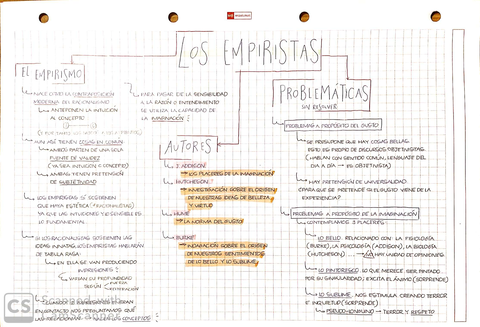 LOS EMPIRISTAS
EL EMPIRISMO
NACE COMO LA CONTRAPOSICIÓN
MODERNA DEL RACIONALISMO
→ ANTEPONEN LA INTUICIÓN
AL CONCEPTO
HAY ALGO TIENEN COSAS EN COMÚN
→ AMBOS PARTEN DE UNA SOLA
FUENTE DE VALIDEZ
(YA SEA INTUICIÓN O CONCEPTO)
→ AMBAS TIENEN PRETENSIÓN
DE SUBJETIVIDAD
LOS EMPIRISTAS SÍ SOSTIENEN
QUE HAYA ESTÉTICA
YA QUE LAS INTUICIONES Y LO SENSIBLE ES
LO FUNDAMENTAL
SI LOS RACIONALISTAS SOSTIENEN LAS
IDEAS INNATAS, LOS EMPIRISTAS HABLARÁN
DE TABULA RASA
→ EN ELLA SE VAN PRODUCIENDO
IMPRESIONES
→ VARÍAN SU PROFUNDIDAD
SEGÚN
CUANDO
EN CONTACTO NOS PREGUNTAMOS QUE
LAS RELACIONA → CONCEPTOS
PARA PASAR DE LA SENSIBILIDAD
A LA RAZÓN O ENTENDIMIENTO
SE UTILIZA LA CAPACIDAD DE
LA IMAGINACIÓN
AUTORES
J. ADDISON:
→ LOS PLACERES DE LA IMAGINACIÓN
HUTCHESON:
→ INVESTIGACIÓN SOBRE EL ORIGEN
DE NUESTRAS IDEAS DE BELLEZA
Y VIRTUD
HUME
→ LA NORMA DEL GUSTO
BURKE:
→ INDAGACIÓN SOBRE EL ORIGEN
DE NUESTROS SENTIMIENTOS
DE LO BELLO Y LO SUBLIME
PROBLEMÁTICAS
SIN RESOLVER
PROBLEMAS A PROPÓSITO DEL GUSTO
SE PRESUPONE QUE HAY COSAS BELLAS.
ESTO ES PROPIO DE DISCURSOS OBJETIVISTAS
(HABLAN CON SENTIDO COMÚN, LENGUAJE DEL
DÍA A DÍA → ES OBJETIVISTA)
HAY PRETENSIÓN DE UNIVERSALIDAD
¿PARA QUÉ SE PRETENDE SI EL GUSTO VIENE DE LA
EXPERIENCIA?
PROBLEMAS A PROPÓSITO DE LA IMAGINACIÓN
CONTEMPLAMOS 3 PLACERES:
LO BELLO: RELACIONADO CON LA FISIOLOGÍA
(BURKE), LA PSICOLOGÍA (ADDISON), LA BIOLOGÍA
(HUTCHESON) → HAY UNIDAD DE OPINIONES
LO PINTORESCO: LO QUE MERECE SER PINTADO
POR SU SINGULARIDAD; EXCITA EL ÁNIMO (SORPRENDE)
LO SUBLIME: NOS ESTIMULA CREANDO TERROR
E INQUIETUD (SORPRENDE)
→ TERROR Y RESPETO
CS
Scanned with
CamScanner